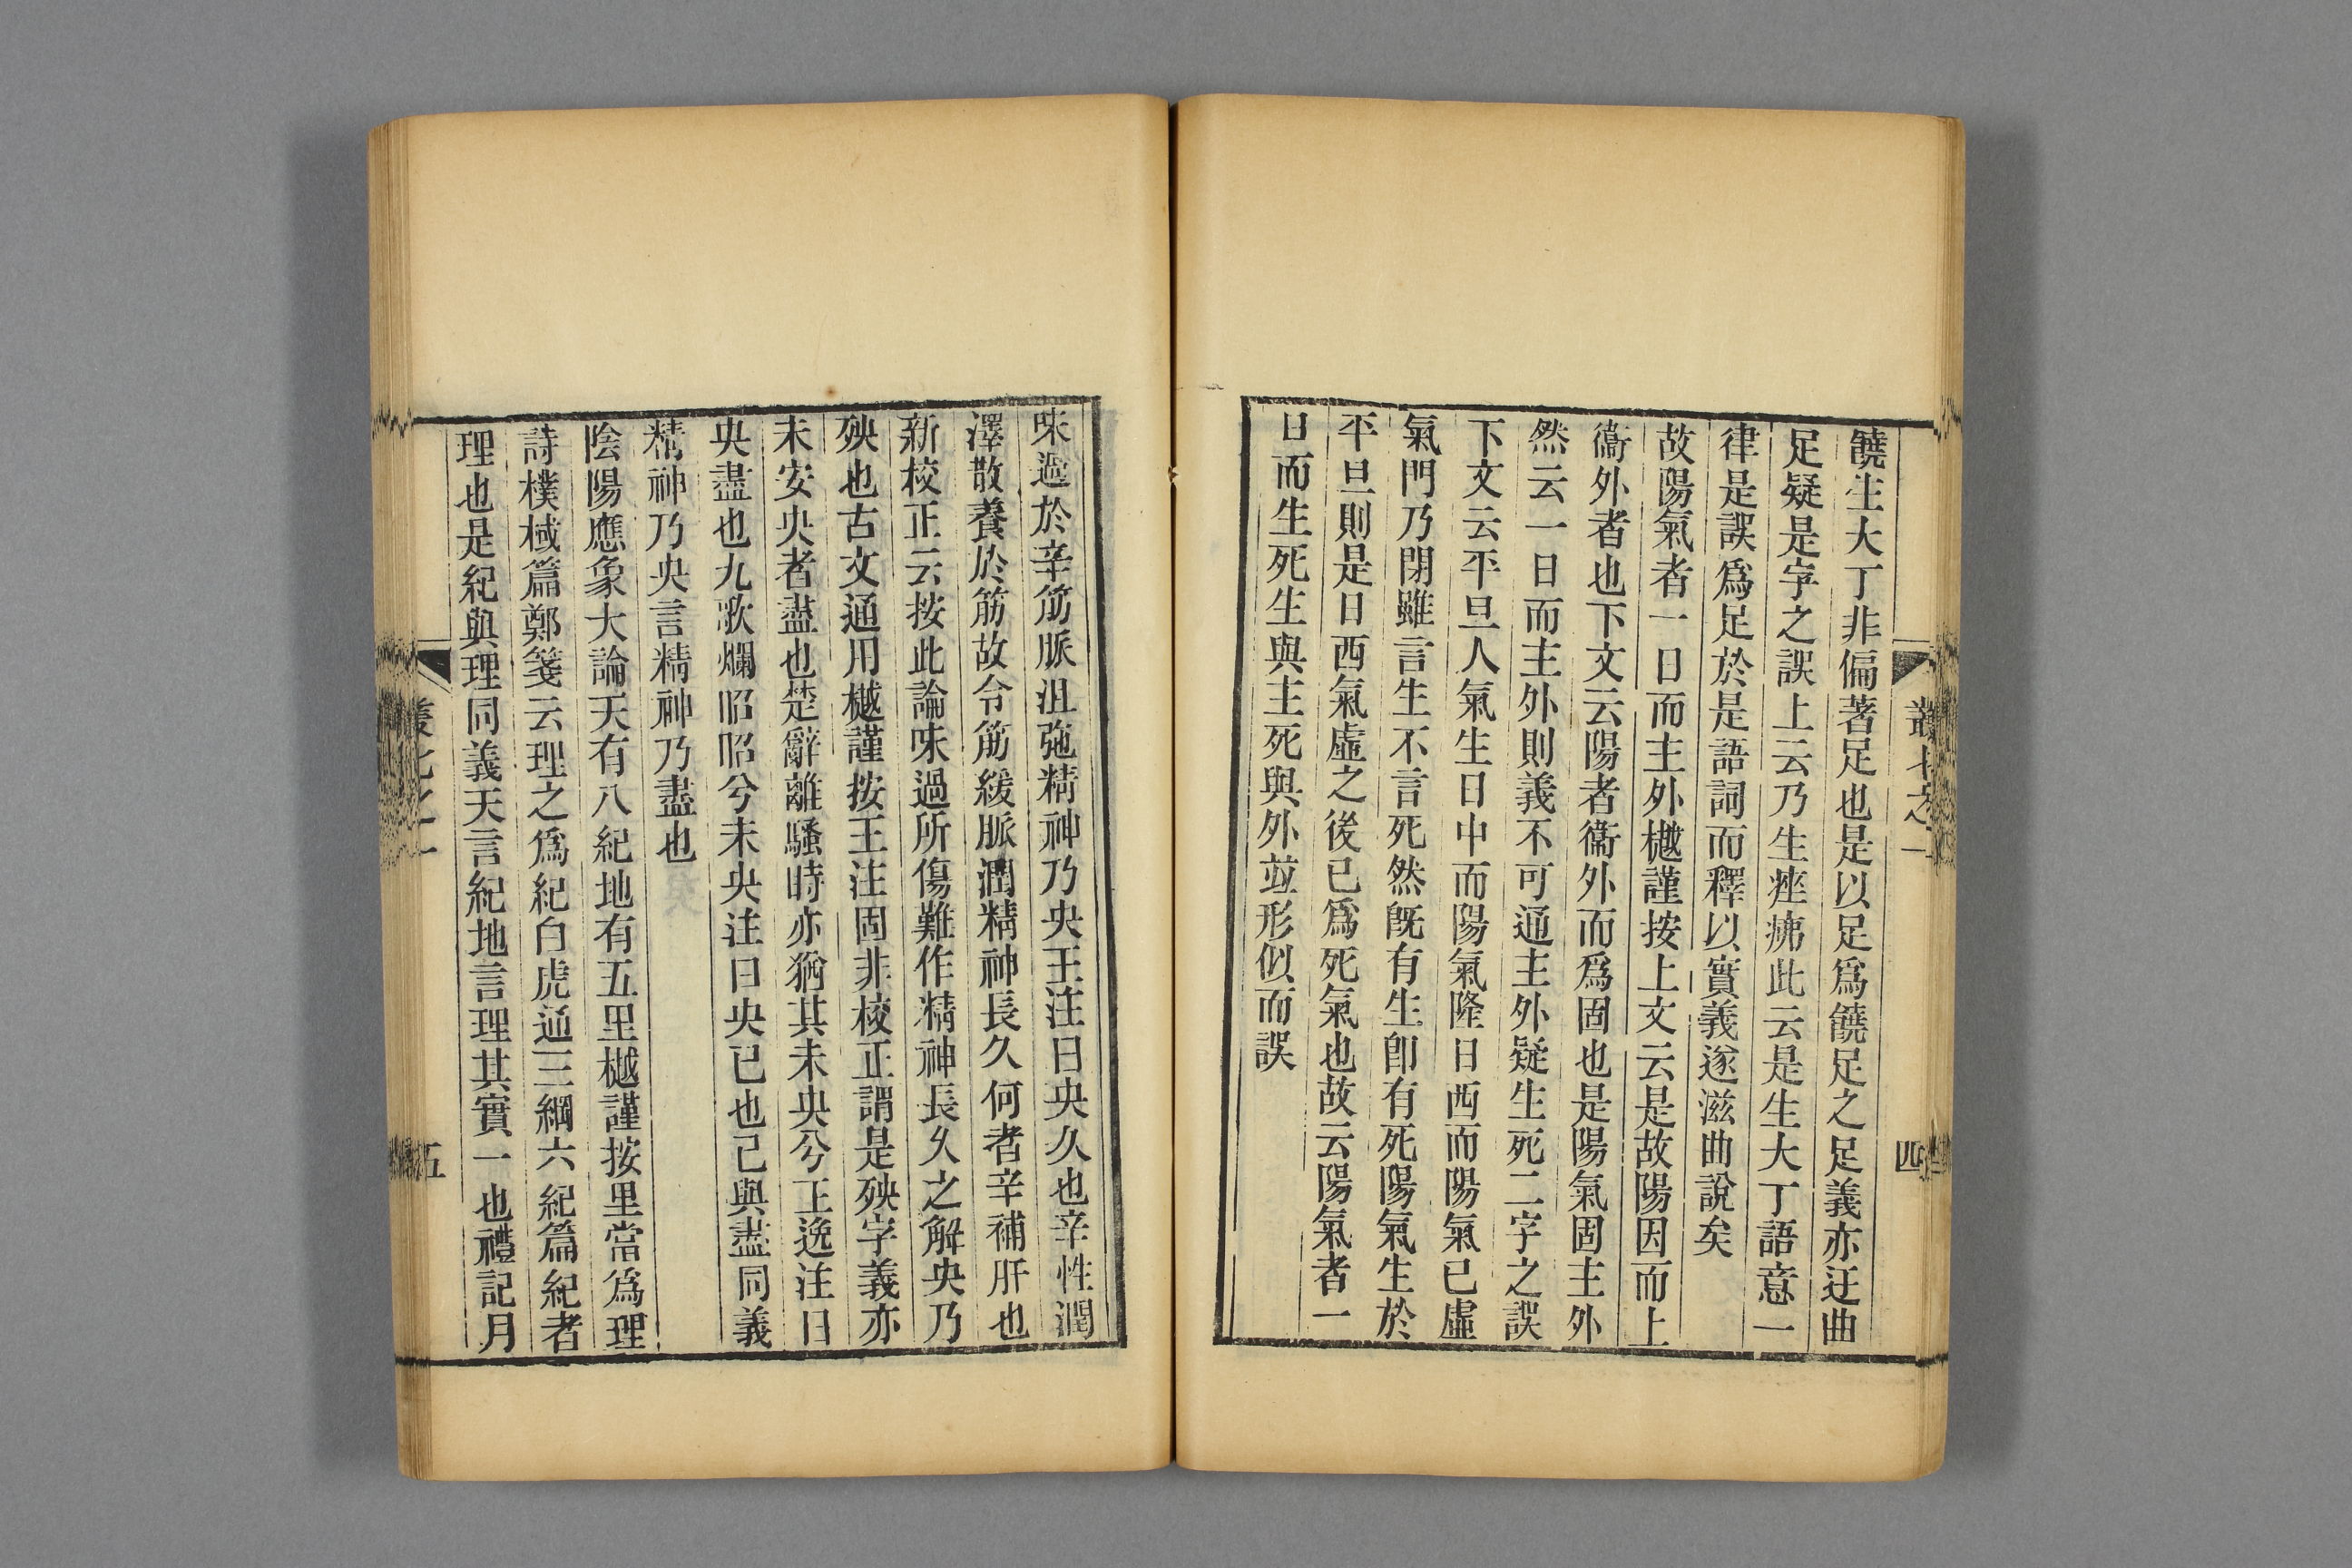 饒生大丁非偏著足也是以足爲饒足之足義亦迂曲
足疑是字之誤上云乃生痤疿此云是生大丁語意一
律是誤爲足於是語詞而釋以實義遂滋曲說矣
故陽氣者一日而主外樾謹按上文云是故陽因而上
衞外者也下文云陽者衞外而爲固也是陽氣固主外
然云一日而主外則義不可通主外疑生死二字之誤
下文云平旦人氣生日中而陽氣隆日西而陽氣已虛
氣門乃閉雖言生不言死然旣有生卽有死陽氣生於
平旦則是日西氣虛之後已爲死氣也故云陽氣者一
日而生死生與主死與外竝形似而誤
四
味過於辛筋脈沮弛精神乃央王注曰央久也辛性潤
澤散養於筋故令筋緩脈潤精神長久何者辛補肝也
新校正云按此論味過所傷難作精神長久之解央乃
殃也古文通用樾謹按王注固非校正謂是殃字義亦
未安央者盡也楚辭離騷時亦猶其未央兮王逸注曰
央盡也九歌爛昭昭兮未央注曰央已也已與盡同義
精神乃央言精神乃盡也
陰陽應象大論天有八紀地有五里樾謹按里當爲理
詩樸棫篇鄭箋云理之爲紀白虎通三綱六紀篇紀者
理也是紀與理同義天言紀地言理其實一也禮記月
五